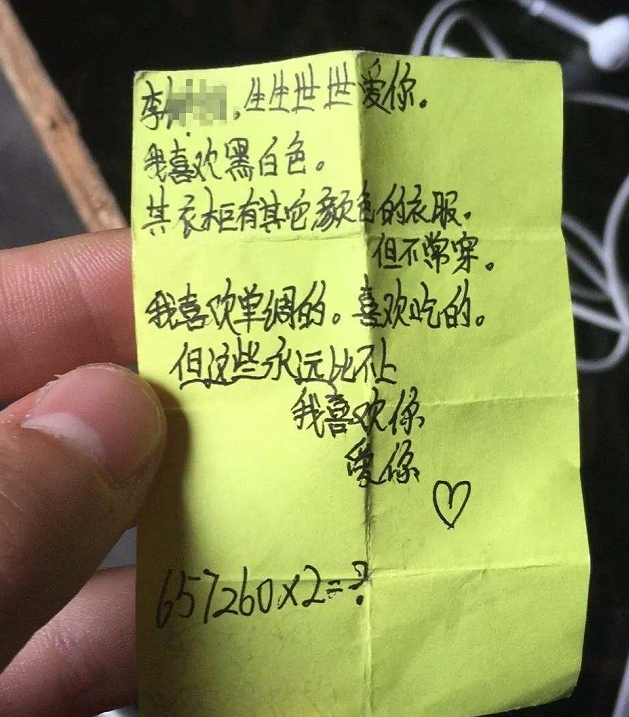 李,生生世世爱你。
我喜欢黑白色。
其衣柜有其它颜色的衣服.
但不常穿。
我喜欢单绸的。喜欢吃的。
但这些永远比不上
我喜欢你
爱你
657260×2=?